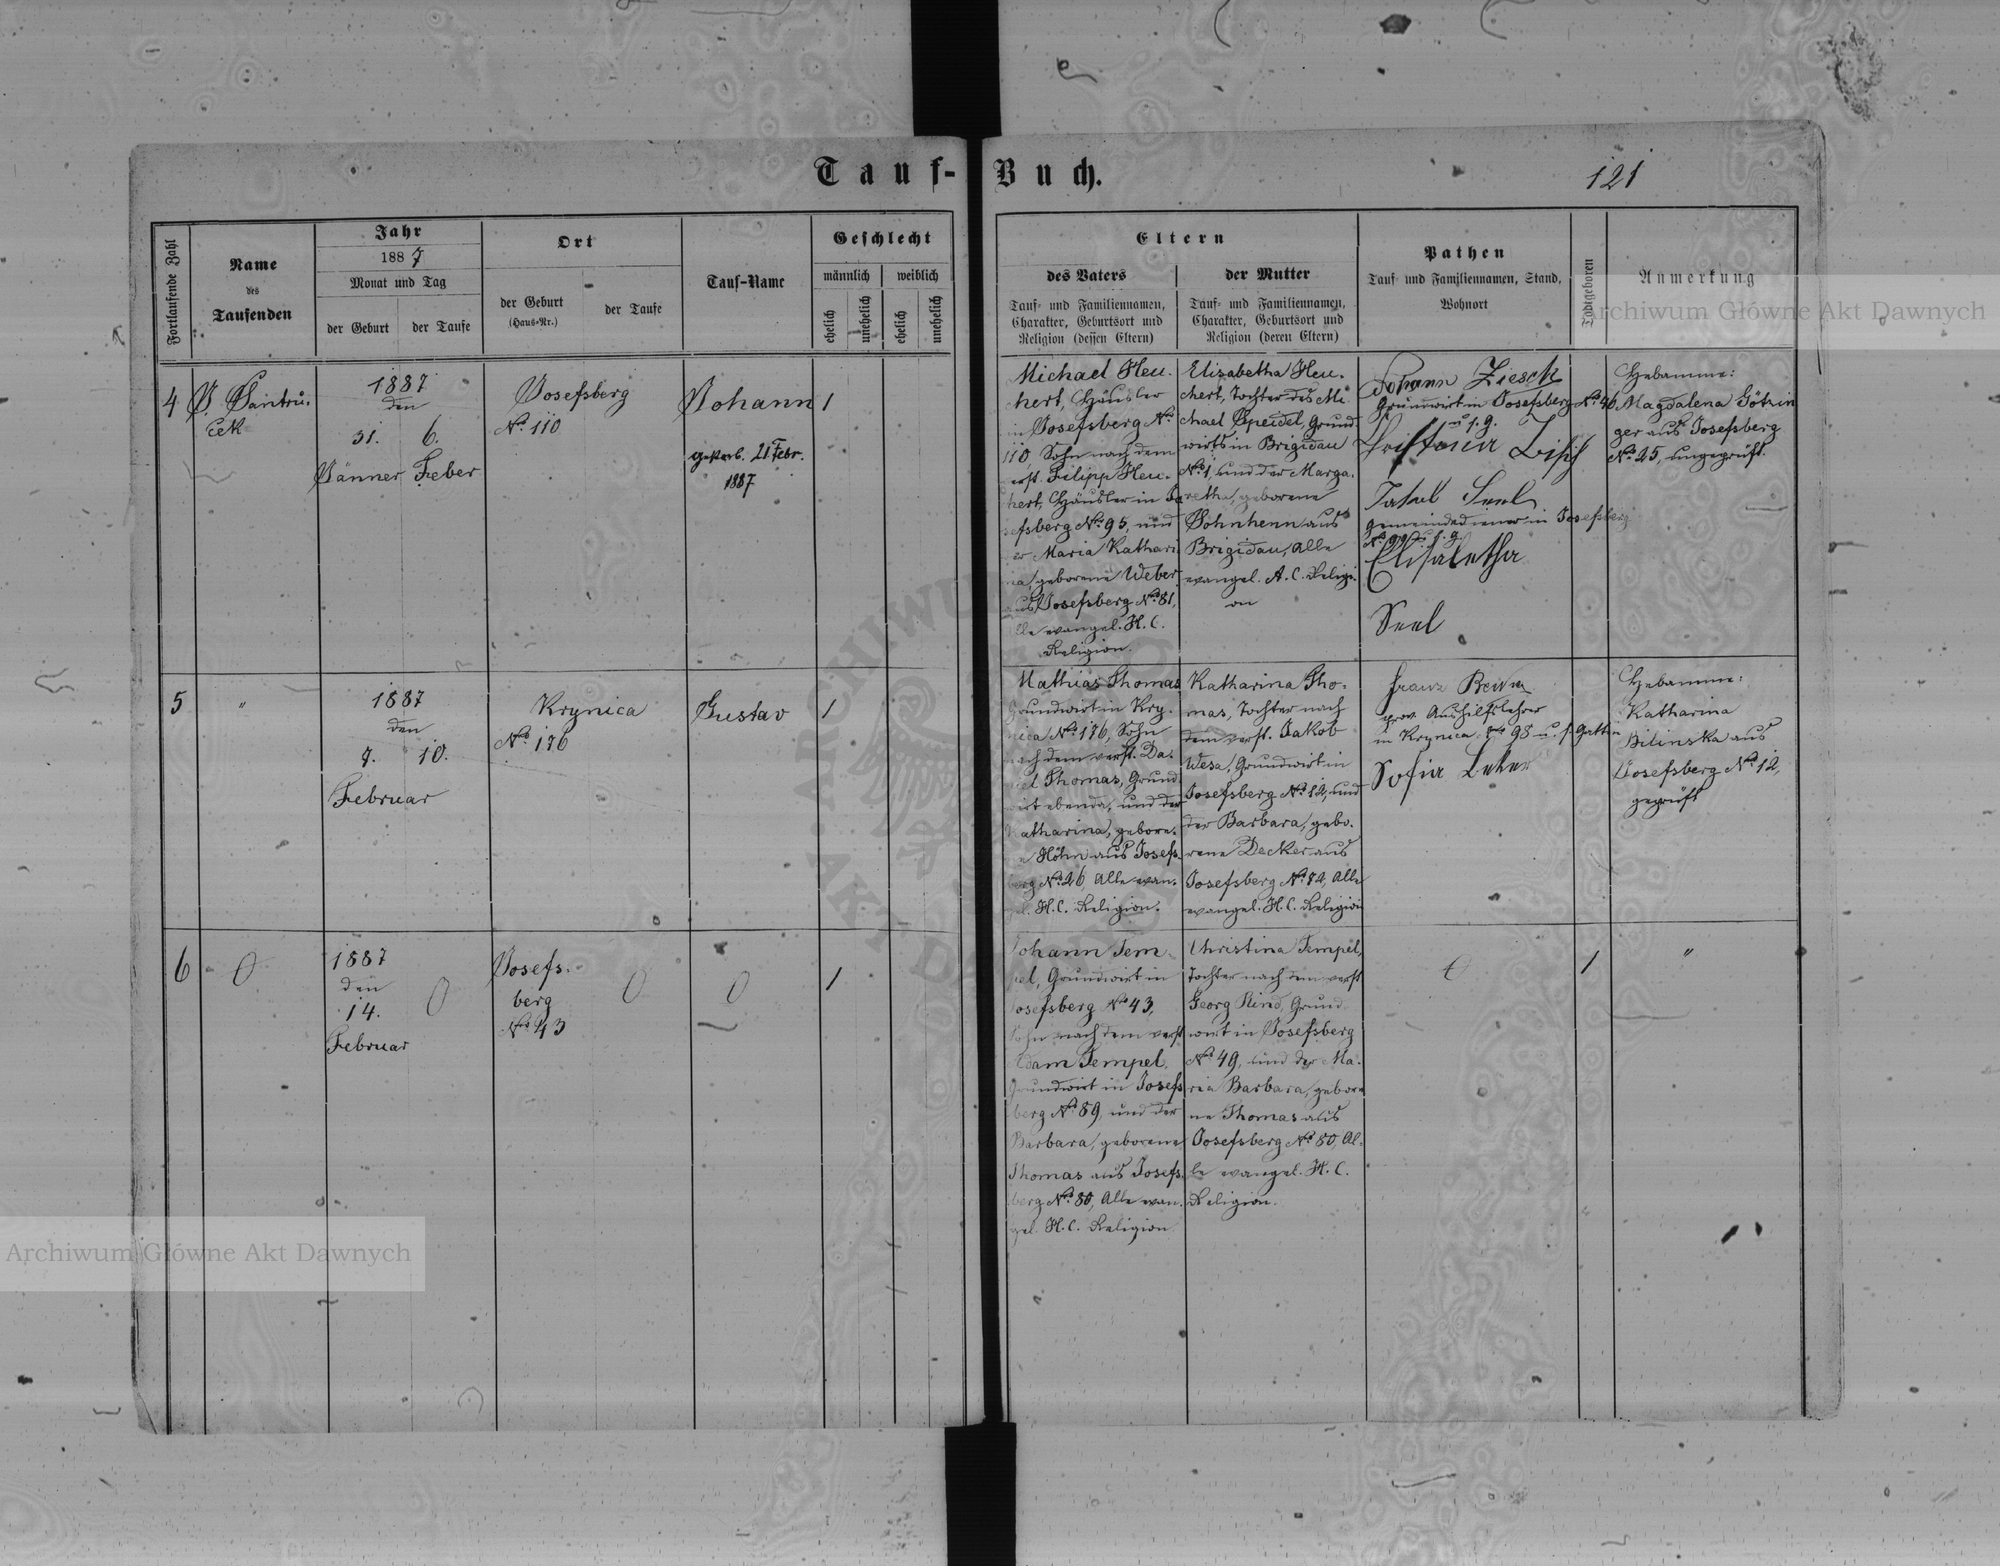 Tauf-Buch.
121
Fortlaufende Zahl
Name
des
Taufenden
Jahr
1887
Monat und Tag
der Geburt
der Taufe
Ort
der Geburt
(Haus-Nr.)
der Taufe
Tauf-Name
Geschlecht
männlich
weiblich
ehelich
unehelich
ehelich
unehelich
Eltern
des Vaters
Tauf- und Familiennamen,
Charakter, Geburtsort und
Religion (dessen Eltern)
der Mutter
Tauf- und Familiennamen,
Charakter, Geburtsort und
Religion (deren Eltern)
Pathen
Tauf- und Familiennamen, Stand,
Wohnort
Todtgeboren
Anmerkung
4
J. Santru-
ček
1887
den
31. 6.
Jänner Feber
Josefsberg
No 110
Johann
gestorb. 21 Febr.
1887
1
Michael Heu-
chert, Häusler
in Josefsberg No
110, Sohn nach dem
verst. Filipp Heu-
chert, Häusler in Jo
sefsberg No 95, und
der Maria Kathari
na, geborene Weber
aus Josefsberg No 81,
Alle evangel. H. C.
Religion.
Elizabetha Heu-
chert, Tochter des Mi
chael Speidel, Grund
wirts in Brigidau
No 1, und der Marga-
retha, geborene
Sohnhenn aus
Brigidau, Alle
evangel. A. C. Religi-
on
Johann
Grundwirt in Josefsberg No 46
u s. g.
Jakob Seel
Gemeindediener in Josefsberg
Elisabetha
Seel
Hebamme:
Magdalena Götzin
ger aus Josefsberg
No 25, ungeprüft.
5
"
1887
den
7. 10.
Februar
Krynica
No 176
Gustav
1
Mathias Thomas
Grundwirt in Kry-
nica No 176, Sohn
nach dem verst. Da-
niel Thomas, Grund
wirt ebenda, und der
Katharina, gebore-
ne Höhn aus Josefs-
berg No 26, Alle evan-
gel. H. C. Religion.
Katharina Tho-
mas, Tochter nach
dem verst. Jakob
Wesa, Grundwirt in
Josefsberg No 12, und
der Barbara, gebo-
rene Decker aus
Josefsberg No 82, Alle
evangel. H. C. Religion
Franz
prov. Aushilfslehrer
in Krynica No 98 u. s. Gattin
Sofia
Hebamme:
Katharina
Bilinska aus
Josefsberg No 12,
geprüft
6
0
1887
den
14.
Februar
0
Josefs-
berg
No 43
0
0
1
Johann Tem-
pel, Grundwirt in
Josefsberg No 43,
Sohn nach dem verst
Adam Tempel,
Grundwirt in Josefs
berg No 89, und der
Barbara, geborene
Thomas aus Josefs-
berg No 80, Alle evan-
gel. H. C. Religion
Christina Tempel,
Tochter nach dem verst
Georg Rind, Grund-
wirt in Josefsberg
No 49, und der Ma-
ria Barbara, gebore
ne Thomas aus
Josefsberg No 80, Al-
le evangel. H. C.
Religion.
0
1
"
Archiwum Główne Akt Dawnych
Archiwum Główne Akt Dawnych